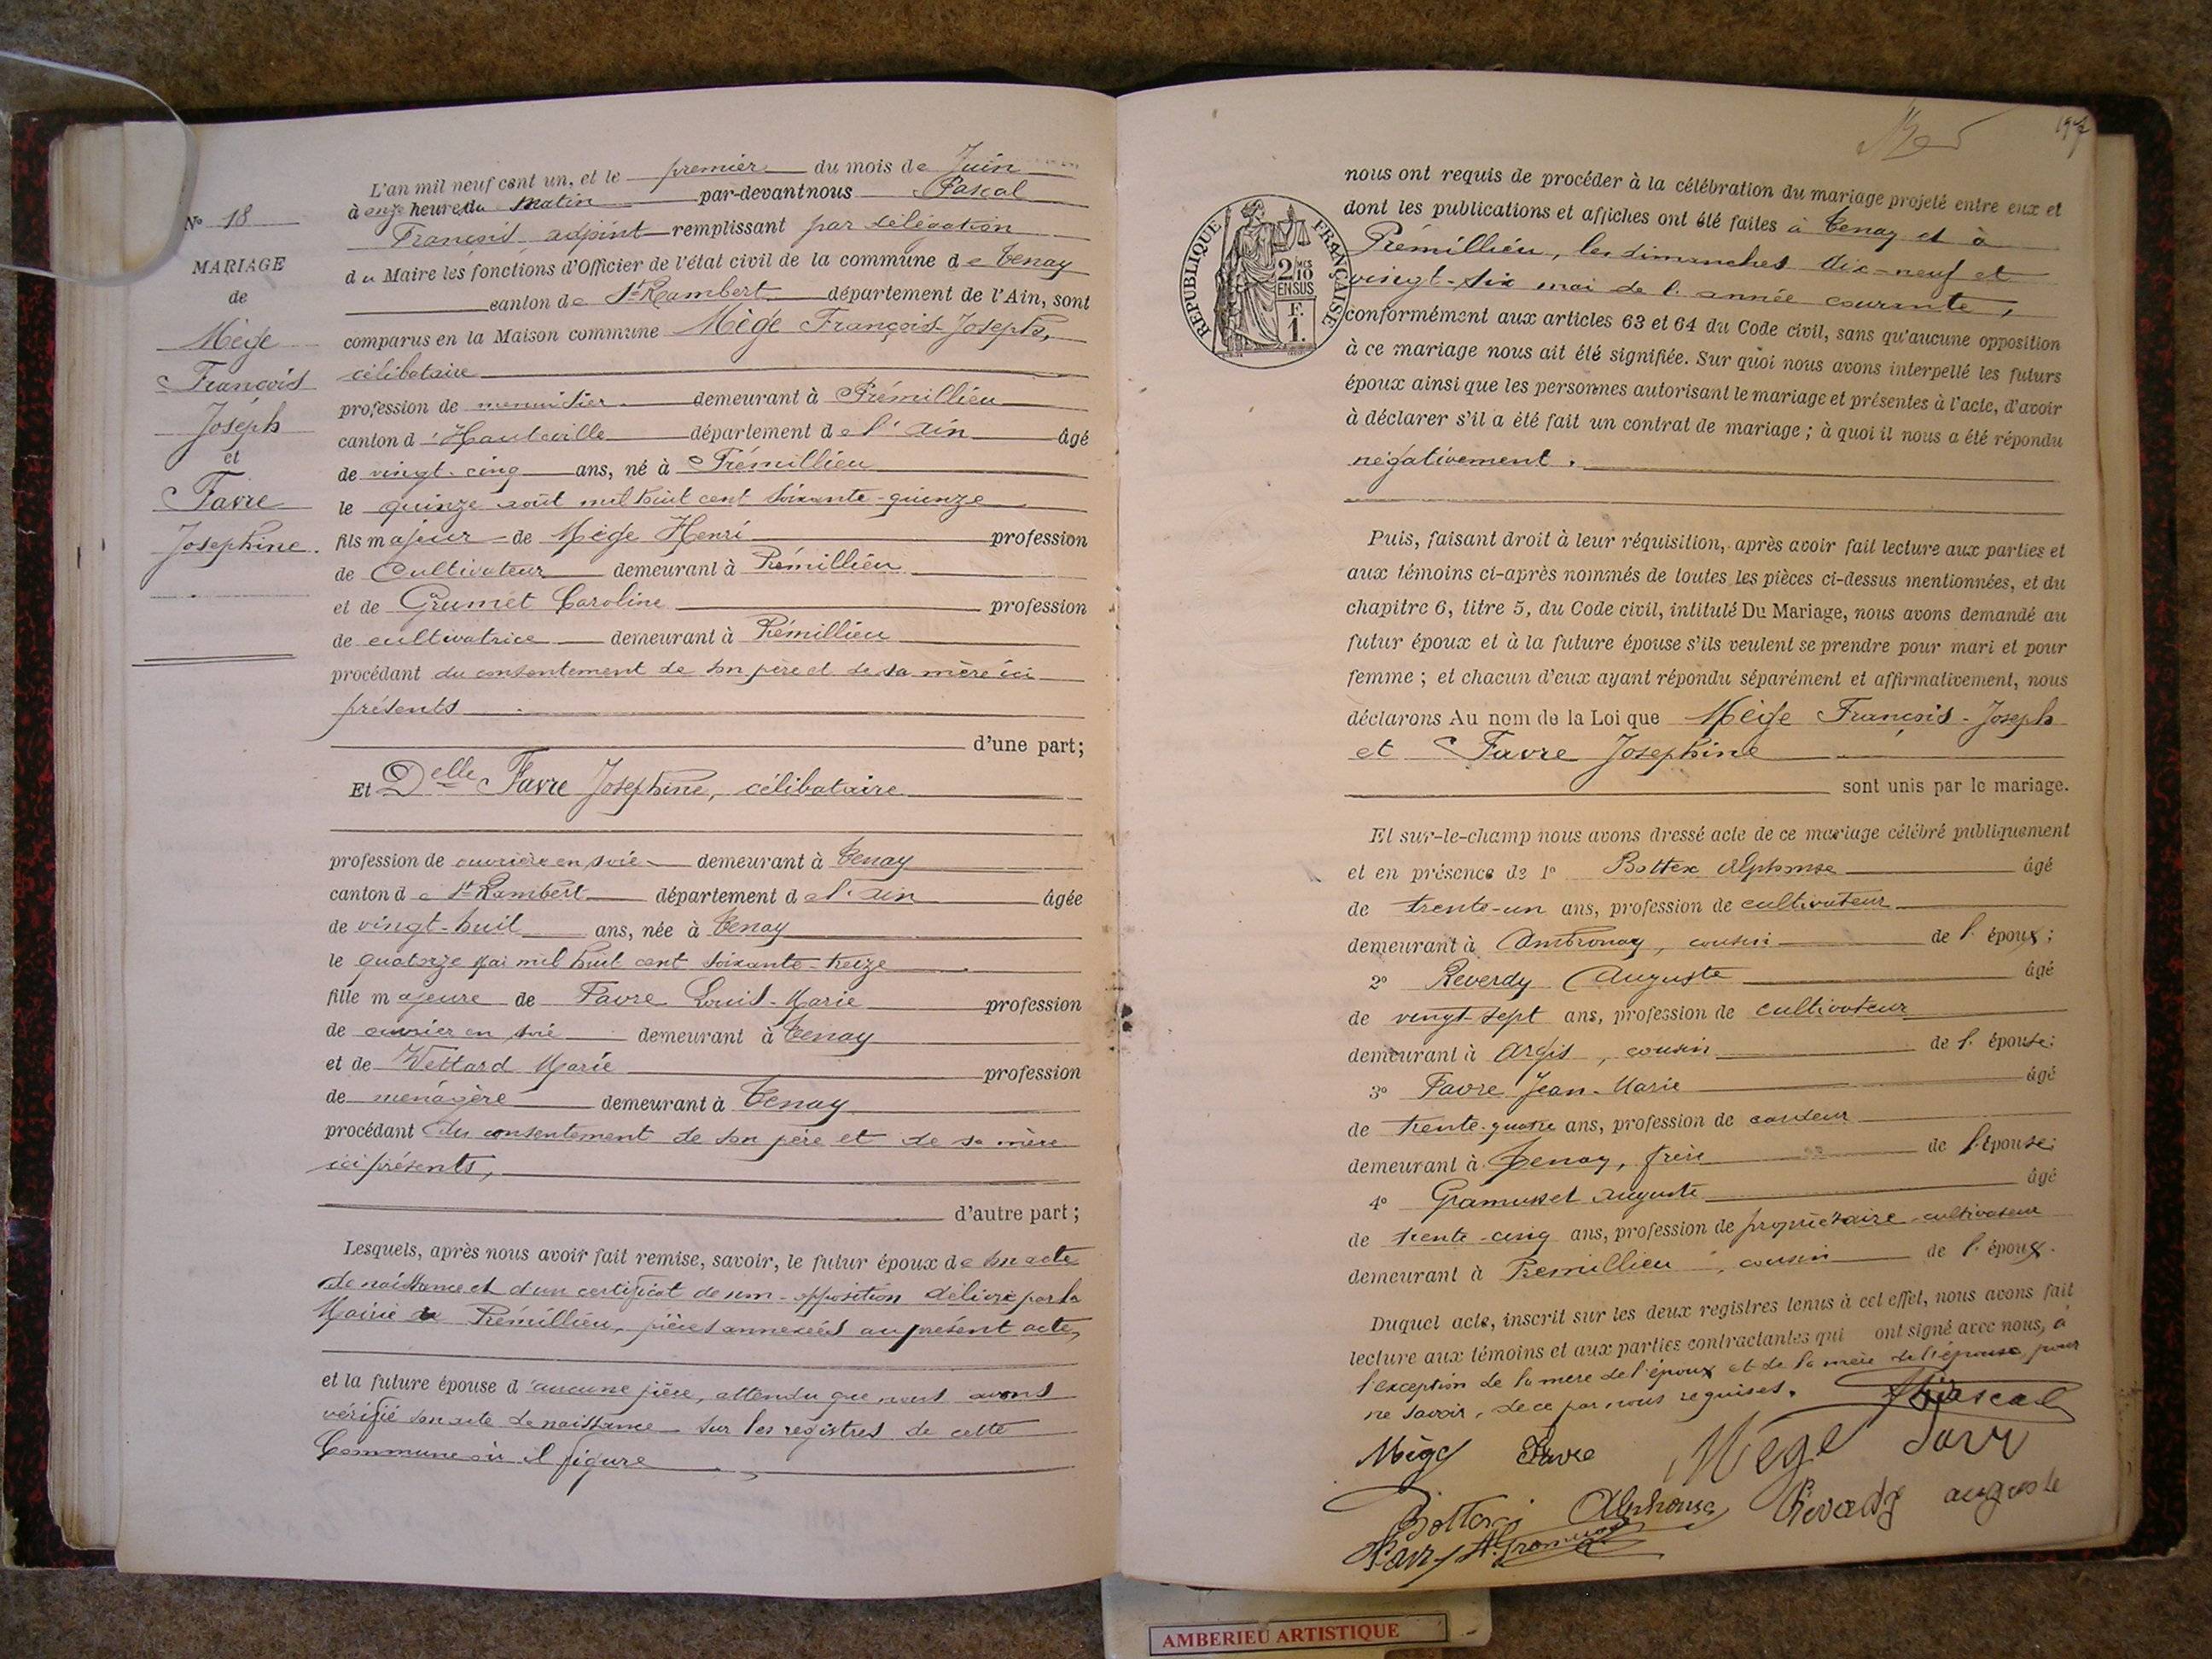 L'an mil neuf cent un, et le premier du mois de Juin
à onze heures du matin par-devant nous Pascal
François adjoint remplissant par délégation
du Maire les fonctions d'Officier de l'état civil de la commune de Tenay
canton de St Rambert département de l'Ain, sont
comparus en la Maison commune Mège François-Joseph,
célibataire
profession de menuisier demeurant à Prémillieu
canton d'Hauteville département de l'Ain âgé
de vingt-cinq ans, né à Prémillieu
le quinze août mil huit cent soixante-quinze
fils majeur de Mège Henri profession
de Cultivateur demeurant à Prémillieu
et de Grumet Caroline profession
de cultivatrice demeurant à Prémillieu
procédant du consentement de son père et de sa mère ici
présents
d'une part;
Et Delle Favre Josephine, célibataire
profession de ouvrière en soie demeurant à Tenay
canton de St Rambert département de l'Ain âgée
de vingt-huit ans, née à Tenay
le quatorze mai mil huit cent soixante-treize
fille majeure de Favre Louis-Marie profession
de ouvrier en soie demeurant à Tenay
et de Vettard Marie profession
de ménagère demeurant à Tenay
procédant du consentement de son père et de sa mère
ici présents,
d'autre part;
Lesquels, après nous avoir fait remise, savoir, le futur époux de son acte
de naissance et d'un certificat de non-opposition délivré par la
Mairie de Prémillieu, pièces annexées au présent acte,
et la future épouse d'aucune pièce, attendu que nous avons
vérifié son acte de naissance sur les registres de cette
Commune où il figure
No 18
MARIAGE
de
Mège
François
Joseph
et
Favre
Josephine.
197
REPUBLIQUE FRANÇAISE
2 MES
10
EN SUS
F.
1.
nous ont requis de procéder à la célébration du mariage projeté entre eux et
dont les publications et affiches ont été faites à Tenay et à
Prémillieu, les dimanches dix-neuf et
vingt-six mai de l'année courante,
conformément aux articles 63 et 64 du Code civil, sans qu'aucune opposition
à ce mariage nous ait été signifiée. Sur quoi nous avons interpellé les futurs
époux ainsi que les personnes autorisant le mariage et présentes à l'acte, d'avoir
à déclarer s'il a été fait un contrat de mariage; à quoi il nous a été répondu
négativement.
Puis, faisant droit à leur réquisition, après avoir fait lecture aux parties et
aux témoins ci-après nommés de toutes les pièces ci-dessus mentionnées, et du
chapitre 6, titre 5, du Code civil, intitulé Du Mariage, nous avons demandé au
futur époux et à la future épouse s'ils veulent se prendre pour mari et pour
femme; et chacun d'eux ayant répondu séparément et affirmativement, nous
déclarons Au nom de la Loi que Mège François-Joseph
et Favre Josephine
sont unis par le mariage.
Et sur-le-champ nous avons dressé acte de ce mariage célébré publiquement
et en présence de 1o Bottex Alphonse âgé
de trente-un ans, profession de cultivateur
demeurant à Ambronay, cousin de l'époux;
2o Reverdy Auguste âgé
de vingt-sept ans, profession de cultivateur
demeurant à Argis, cousin de l'épouse;
3o Favre Jean-Marie âgé
de trente-quatre ans, profession de cardeur
demeurant à Tenay, frère de l'épouse;
4o Gramusset Auguste âgé
de trente-cinq ans, profession de propriétaire-cultivateur
demeurant à Prémillieu, cousin de l'époux.
Duquel acte, inscrit sur les deux registres tenus à cet effet, nous avons fait
lecture aux témoins et aux parties contractantes qui ont signé avec nous, à
l'exception de la mère de l'époux et de la mère de l'épouse pour
ne savoir, de ce par nous requises. Pascal
Mège Favre Mège Favr
Bottex Alphonse Reverdy auguste
Favr
AMBERIEU ARTISTIQUE